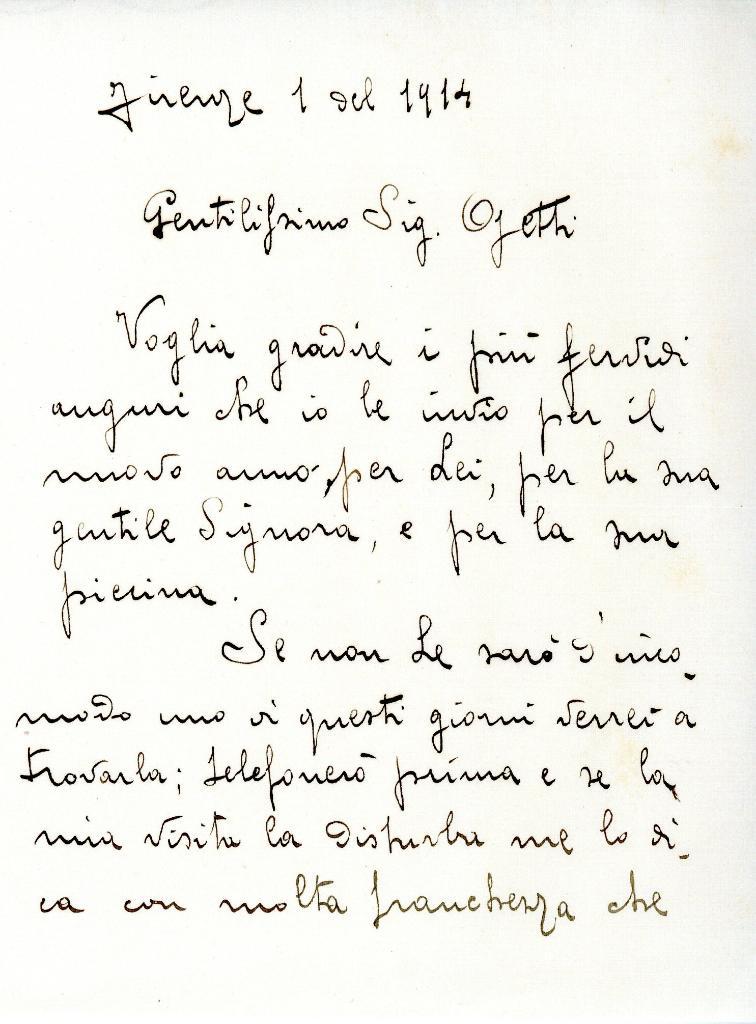 Firenze 1 del 1914
Gentilissimo Sig. Ojetti
Voglia gradire i più fervidi
auguri che io le invio per il
nuovo anno, per Lei, per la sua
gentile Signora, e per la sua
piccina.
Se non Le sarò d'inco-
modo uno di questi giorni verrei a
trovarla; telefonerò prima e se la
mia visita la disturba me lo di-
ca con molta franchezza che